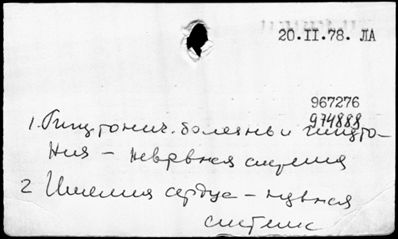 20.II.78. ЛА
967276
974888
1. Гипертонич. болезнь и гиперто-
ния – нервная система
2 Ишемия сердца – нервная
система